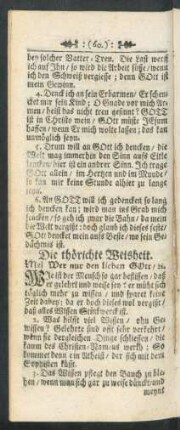 :( 60. ):
bey solcher Vatter-Treu. Die Last werff
ich auf Ihn/ so wird die Arbeit süsse/ wenn
ich den Schweiß vergiesse; denn GOtt ist
mein Gewinn.
4. Denck ich an sein Erbarmen/ Er schen-
cket mir sein Kind; O Gnade vor mich Ar-
men/ heißt das nicht treu gesinnt? GOTT
ist in Christo mein/ GOtt müste JEsum
hassen/ wenn Er mich wolte lassen; das kan
unmöglich seyn.
5. Drum will an GOtt ich dencken/ die
Welt mag immerhin den Sinn auf Eitle
lencken/ hier ist ein andrer Sinn. Ich trage
GOtt allein/ im Hertzen und im Munde/
so kan mir keine Stunde allhier zu lange
seyn.
6. An GOTT will ich gedencken so lang
ich dencken kan; wird man ins Grab mich
sencken/ so geh ich zwar die Bahn/ da mein
die Welt vergißt; doch glaub ich dieses feste/
GOtt dencket mein aufs Beste/ wo sein Ge-
dächtnis ist.
Die thörichte Weisheit.
Mel. Wer nur den lieben GOtt/ ec.
Weil der Mensch so gar beflissen/ daß
er gelehrt und weise sey? er müht sich
täglich mehr zu wissen/ und spart keine
Zeit dabey; da er doch dieses wol vergißt/
daß alles Wissen Stückwerck ist.
2. Was hilfft viel Wissen/ ohn Ge-
wissen? Gelehrte sind offt sehr verkehrt/
wann sie dergleichen Dinge schliessen/ die
kaum des Christen-Namens werth: So
kommet denn ein Urtheil/ der sich mit dem
3. Das Wissen pflegt den Bauch zu blä-
hen/ wenn man sich gar zu weise dünckt/ und
meynt